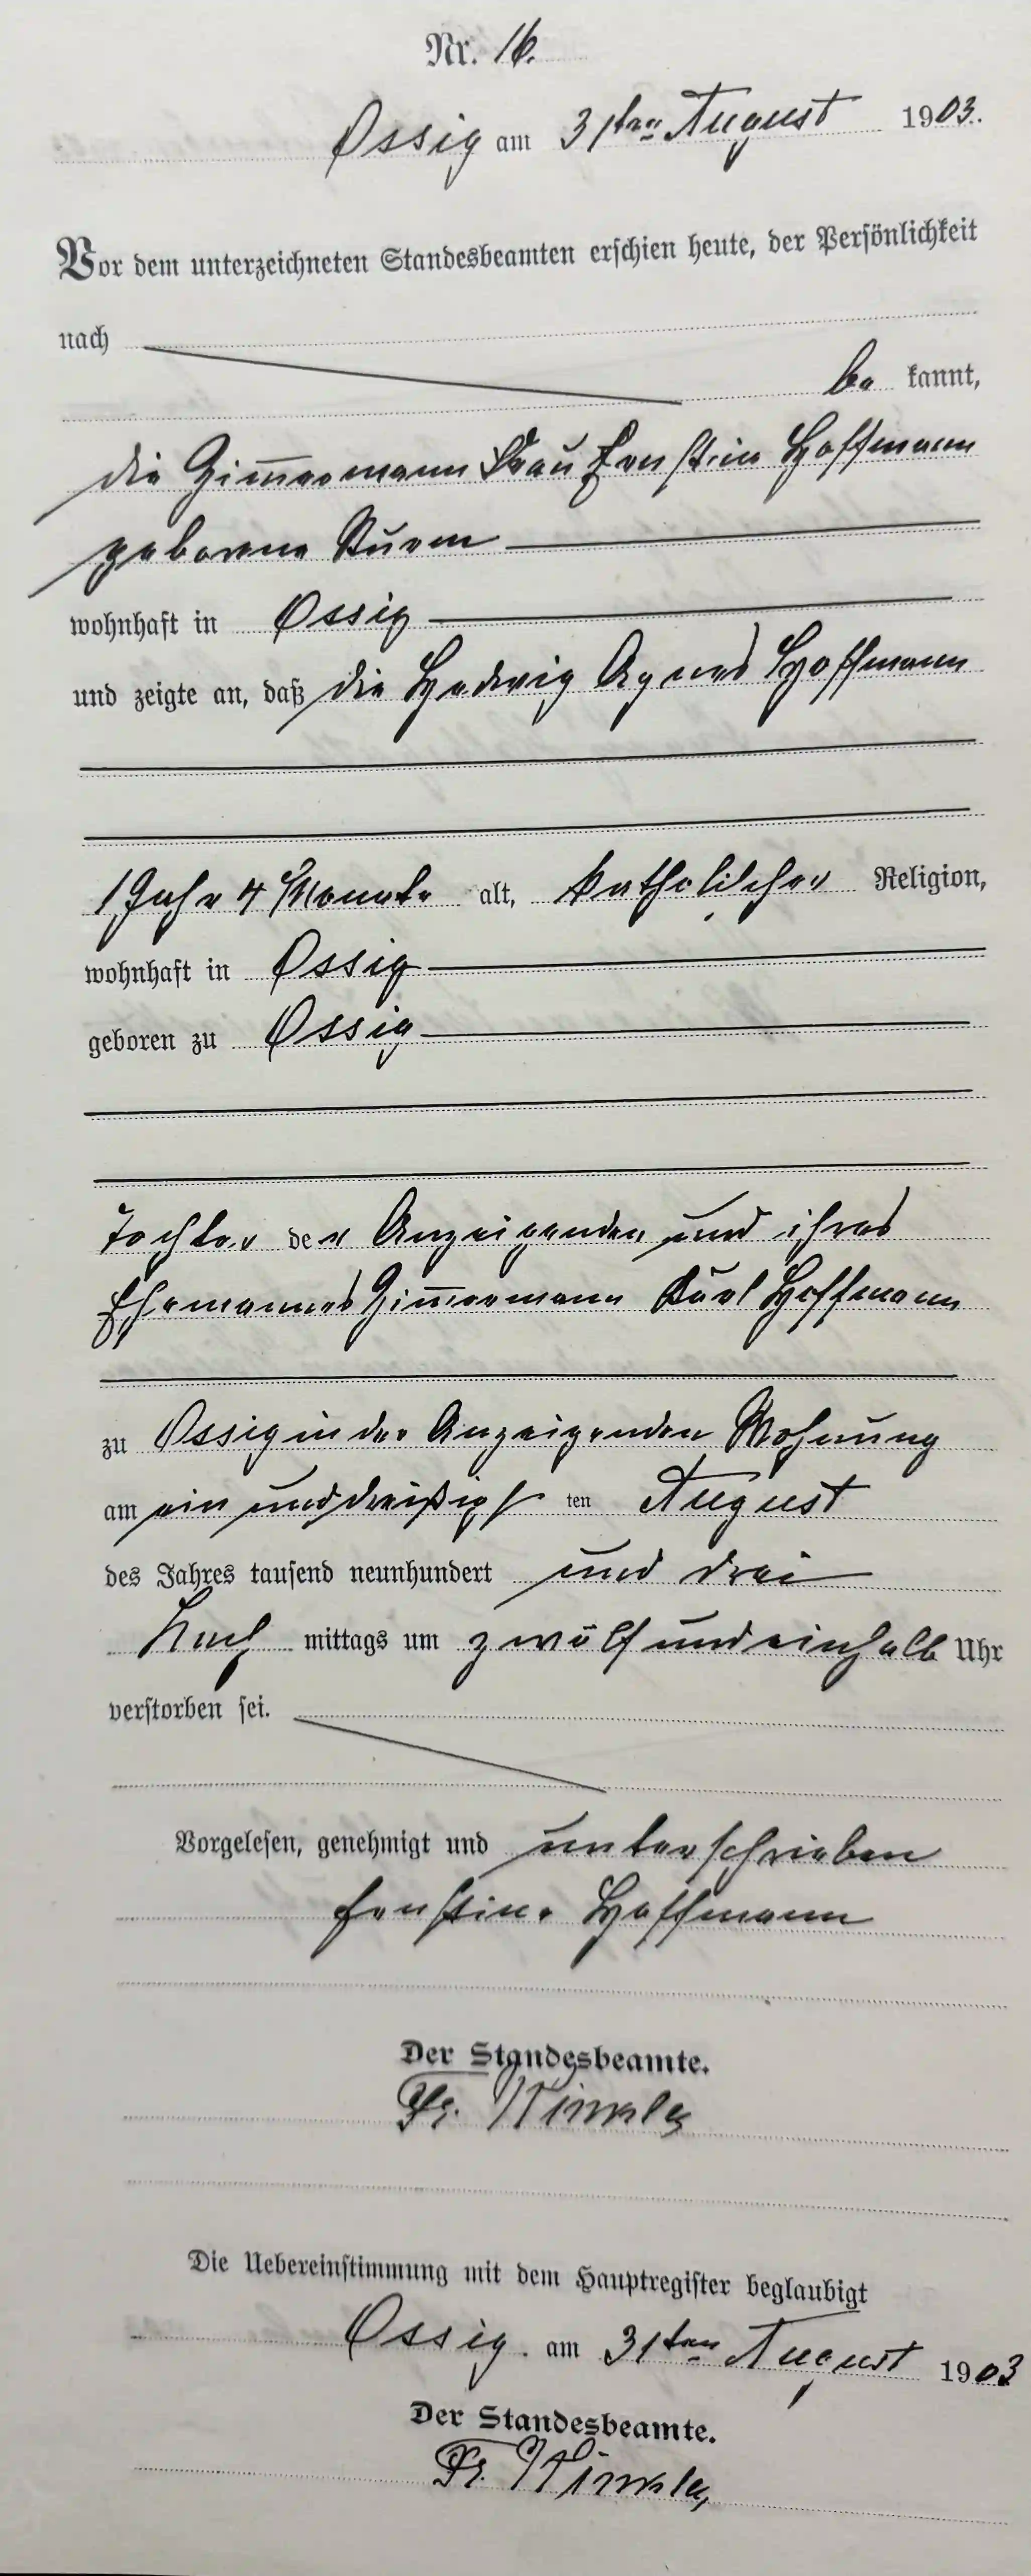 Nr. 16.
Ossig am 31ten August 1903.
Vor dem unterzeichneten Standesbeamten erschien heute, der Persönlichkeit
nach
be kannt,
die Zimmermann Frau Ernstine Hoffmann
geborene Sturm
wohnhaft in Ossig
und zeigte an, daß die Hedwig Agnes Hoffmann
1 Jahr 4 Monate alt, katholischer Religion,
wohnhaft in Ossig
geboren zu Ossig
Tochter der Anzeigenden und ihres
Ehemannes Zimmermann Karl Hoffmann
zu Ossig in der Anzeigenden Wohnung
am ein und dreißigsten August
des Jahres tausend neunhundert und drei
Nach mittags um zwölf und einhalb Uhr
verstorben sei.
Vorgelesen, genehmigt und unterschrieben
Ernstine Hoffmann
Der Standesbeamte.
Fr.
Die Uebereinstimmung mit dem Hauptregister beglaubigt
Ossig. am 31ten August 1903
Der Standesbeamte.
Fr.